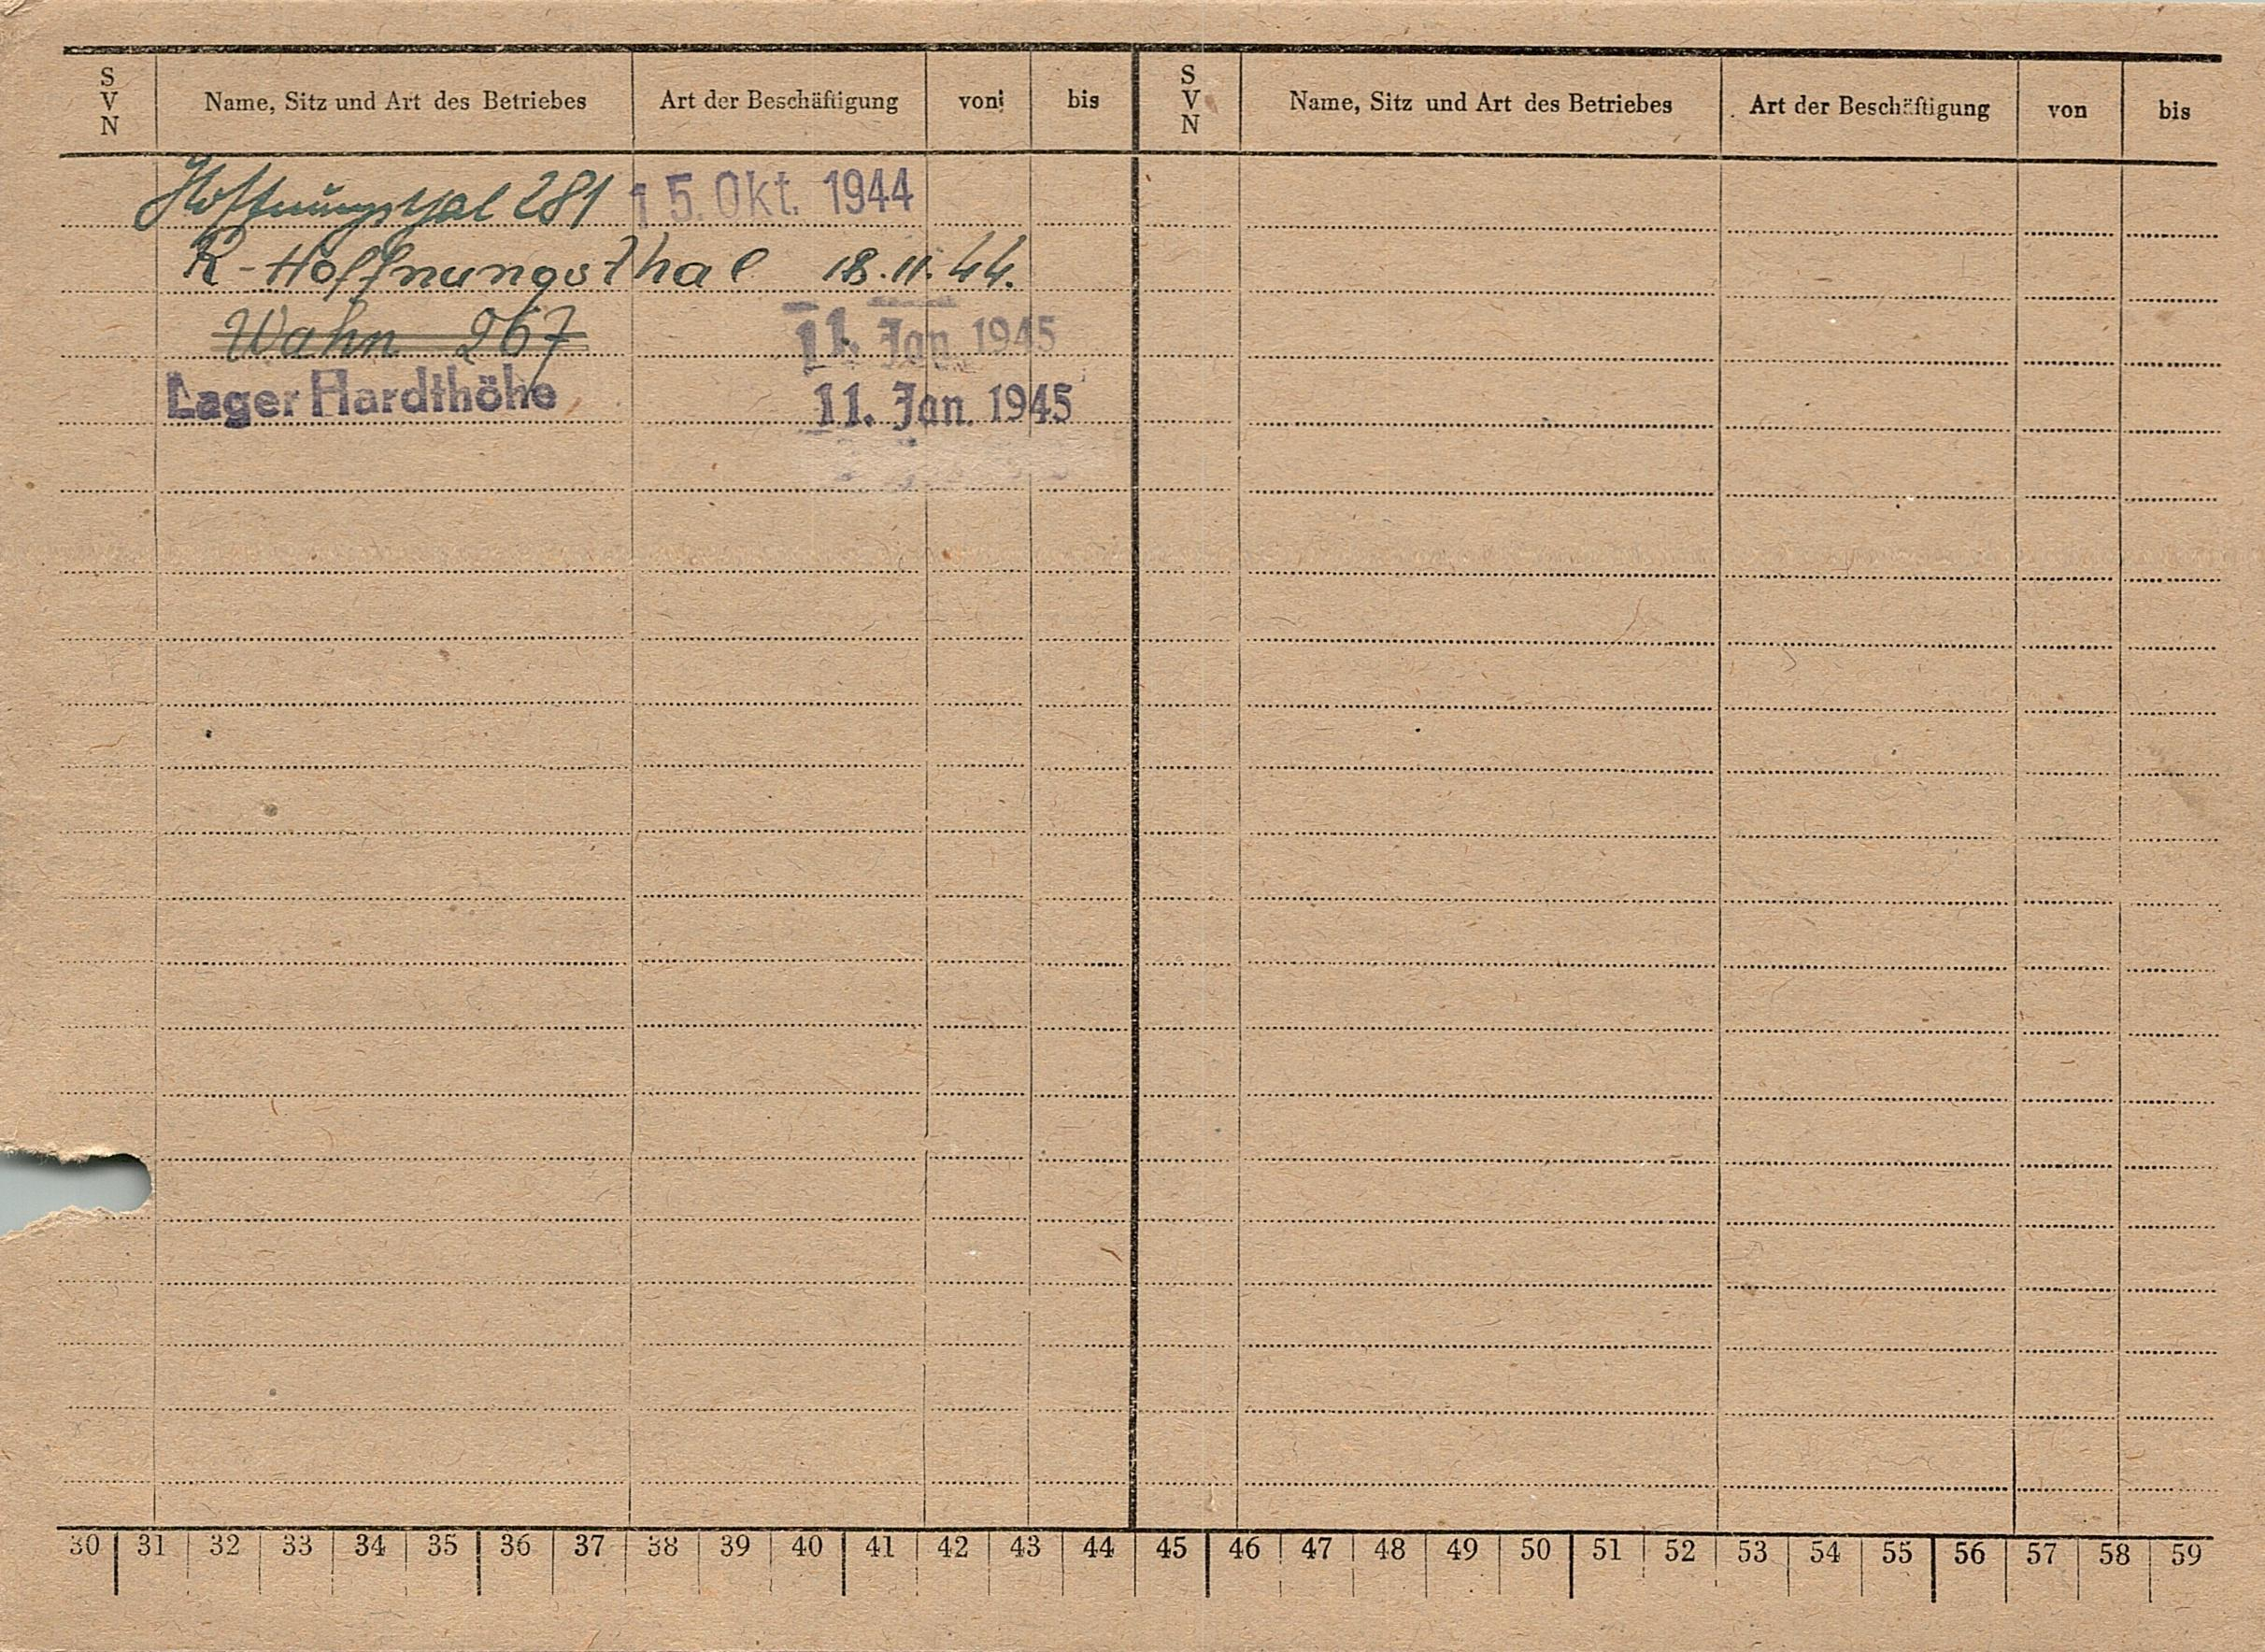 S V N Name, Sitz und Art des Betriebes Art der Beschäftigung von bis S V N Name, Sitz und Art des Betriebes Art der Beschäftigung von bis
Hoffnungsthal 281 15. Okt. 1944
K-Hoffnungsthal 18.11.44.
Wahn 267 11. Jan. 1945
Lager Hardthöhe 11. Jan. 1945
30 31 32 33 34 35 36 37 38 39 40 41 42 43 44 45 46 47 48 49 50 51 52 53 54 55 56 57 58 59